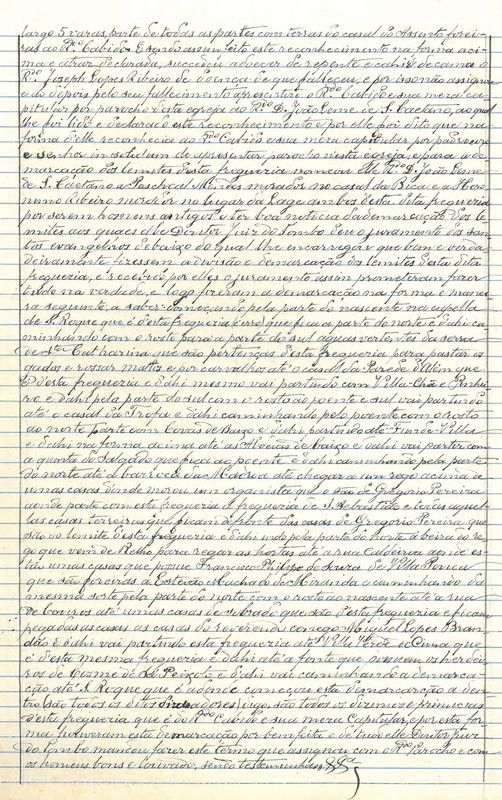 largo 5 varas, parte de todas as partes com terras do casal do Assento forei-
ras ao R.do Cabido. E sendo assim feito este reconhecimento na forma aci-
ma e atraz declarada, succedeu adoecer de repente e cahir de cama o
R.do Joseph Lopes Ribeiro de doença de que falleceu, e por isso não assignou
e do depois pelo seu fallecimento apresentou o R.do Cabido e sua meza ca-
pitular por parocho d'esta egreja ao R.do D. João Leme de S. Caetano, ao qual
lhe foi lido e declarado este reconhecimento e por elle foi dito que na
forma d'elle reconhecia ao R.do Cabido e sua meza capitular por padroeiro
e senhor in solidum de apresentar parocho n'esta egreja, e para a de-
marcação dos lemites d'esta freguezia nomeou elle R.do D. João Leme
de S. Caetano a Paschoal Mendes morador no casal da Bica e a Hiero-
nimo Ribeiro morador no lugar da Lage ambos d'esta dita freguezia
por serem homens antigos e ter boa noticia da demarcação dos le-
mites aos quaes elle Doutor Juiz do Tombo deu o juramento dos san-
tos evangelhos debaixo do qual lhe encarregou que bem e verda-
deiramente fizessem a divisão e demarcação dos lemites d'esta dita
freguezia, e recebido por elles o juramento assim prometeram fazer
tudo na verdade, e logo fizeram a demarcação na forma e manei-
ra seguinte, a saber: começando pela parte do nascente na capella
de S. Roque que é d'esta freguezia e que fica a parte do norte e d'ahi ca-
minhando com o rosto para a parte do sul aguas vertentes da serra
de S.ta Catharina que são pertenças d'esta freguezia para pastar os
gados e rossar mattos e por carvalhos até o casal da Parede d'Alem que
é d'esta freguezia e d'ahi mesmo vai partindo com Villa Chã e Pinhei-
ro e d'ahi pela parte do sul com o rosto ao poente e sul vai partindo
até o casal da Trofa e d'ahi caminhando pelo poente com o rosto
ao norte parte com Covas de Baixo e d'ahi partindo até Fundo Villa
e d'ahi na forma acima até as Aldeias de Baixo e d'ahi vai partir com
a quinta do Salgado que fica ao poente e d'ahi caminhando pela parte
do norte até á barroca da Madroa até chegar a um rego acima de
umas casas d'inde morou um organista que são de Gregorio Pereira
aonde parte com esta freguezia a freguezia de S. Sebastião e todas aquel-
las casas torreiras que ficam defronte das casas de Gregorio Pereira que
são do lemite d'esta freguezia e d'ahi indo pela parte do norte á beira do re-
go que vem de Relho para regar as hortas até á rua Caldeiroa aonde es-
tão umas casas que possue Francisco Philipe de Souza de Villa Pouca
que são foreiras a Estevão Machado de Miranda e caminhando da
mesma sorte pela parte do norte com o rosto ao nascente até a rua
de Couros até umas casas de sobrado que são d'esta freguezia e ficam
pegadas as casas as casas do reverendo conego Miguel Lopes Bran-
dão e d'ahi vai partindo esta freguezia até Villa Verde de Cima que
é d'esta mesma freguezia e d'ahi até a fonte que possuem os herdei-
ros de Cosme de Sá Peixoto e d'ahi vai caminhando a demarca-
ção até S. Roque que é adonde começou esta demarcação a den-
tro são todos os ditos moradores, digo são todos os dizimos e primicias
d'esta freguezia que é do R.do Cabido e sua meza Capitular, e por esta for-
ma houveram esta demarcação por bem feita e de tudo elle Doutor Juiz
do Tombo mandou fazer este termo que assignou com o R.do Parocho e com
os homens bons e louvado, sendo testemunhas &.ª